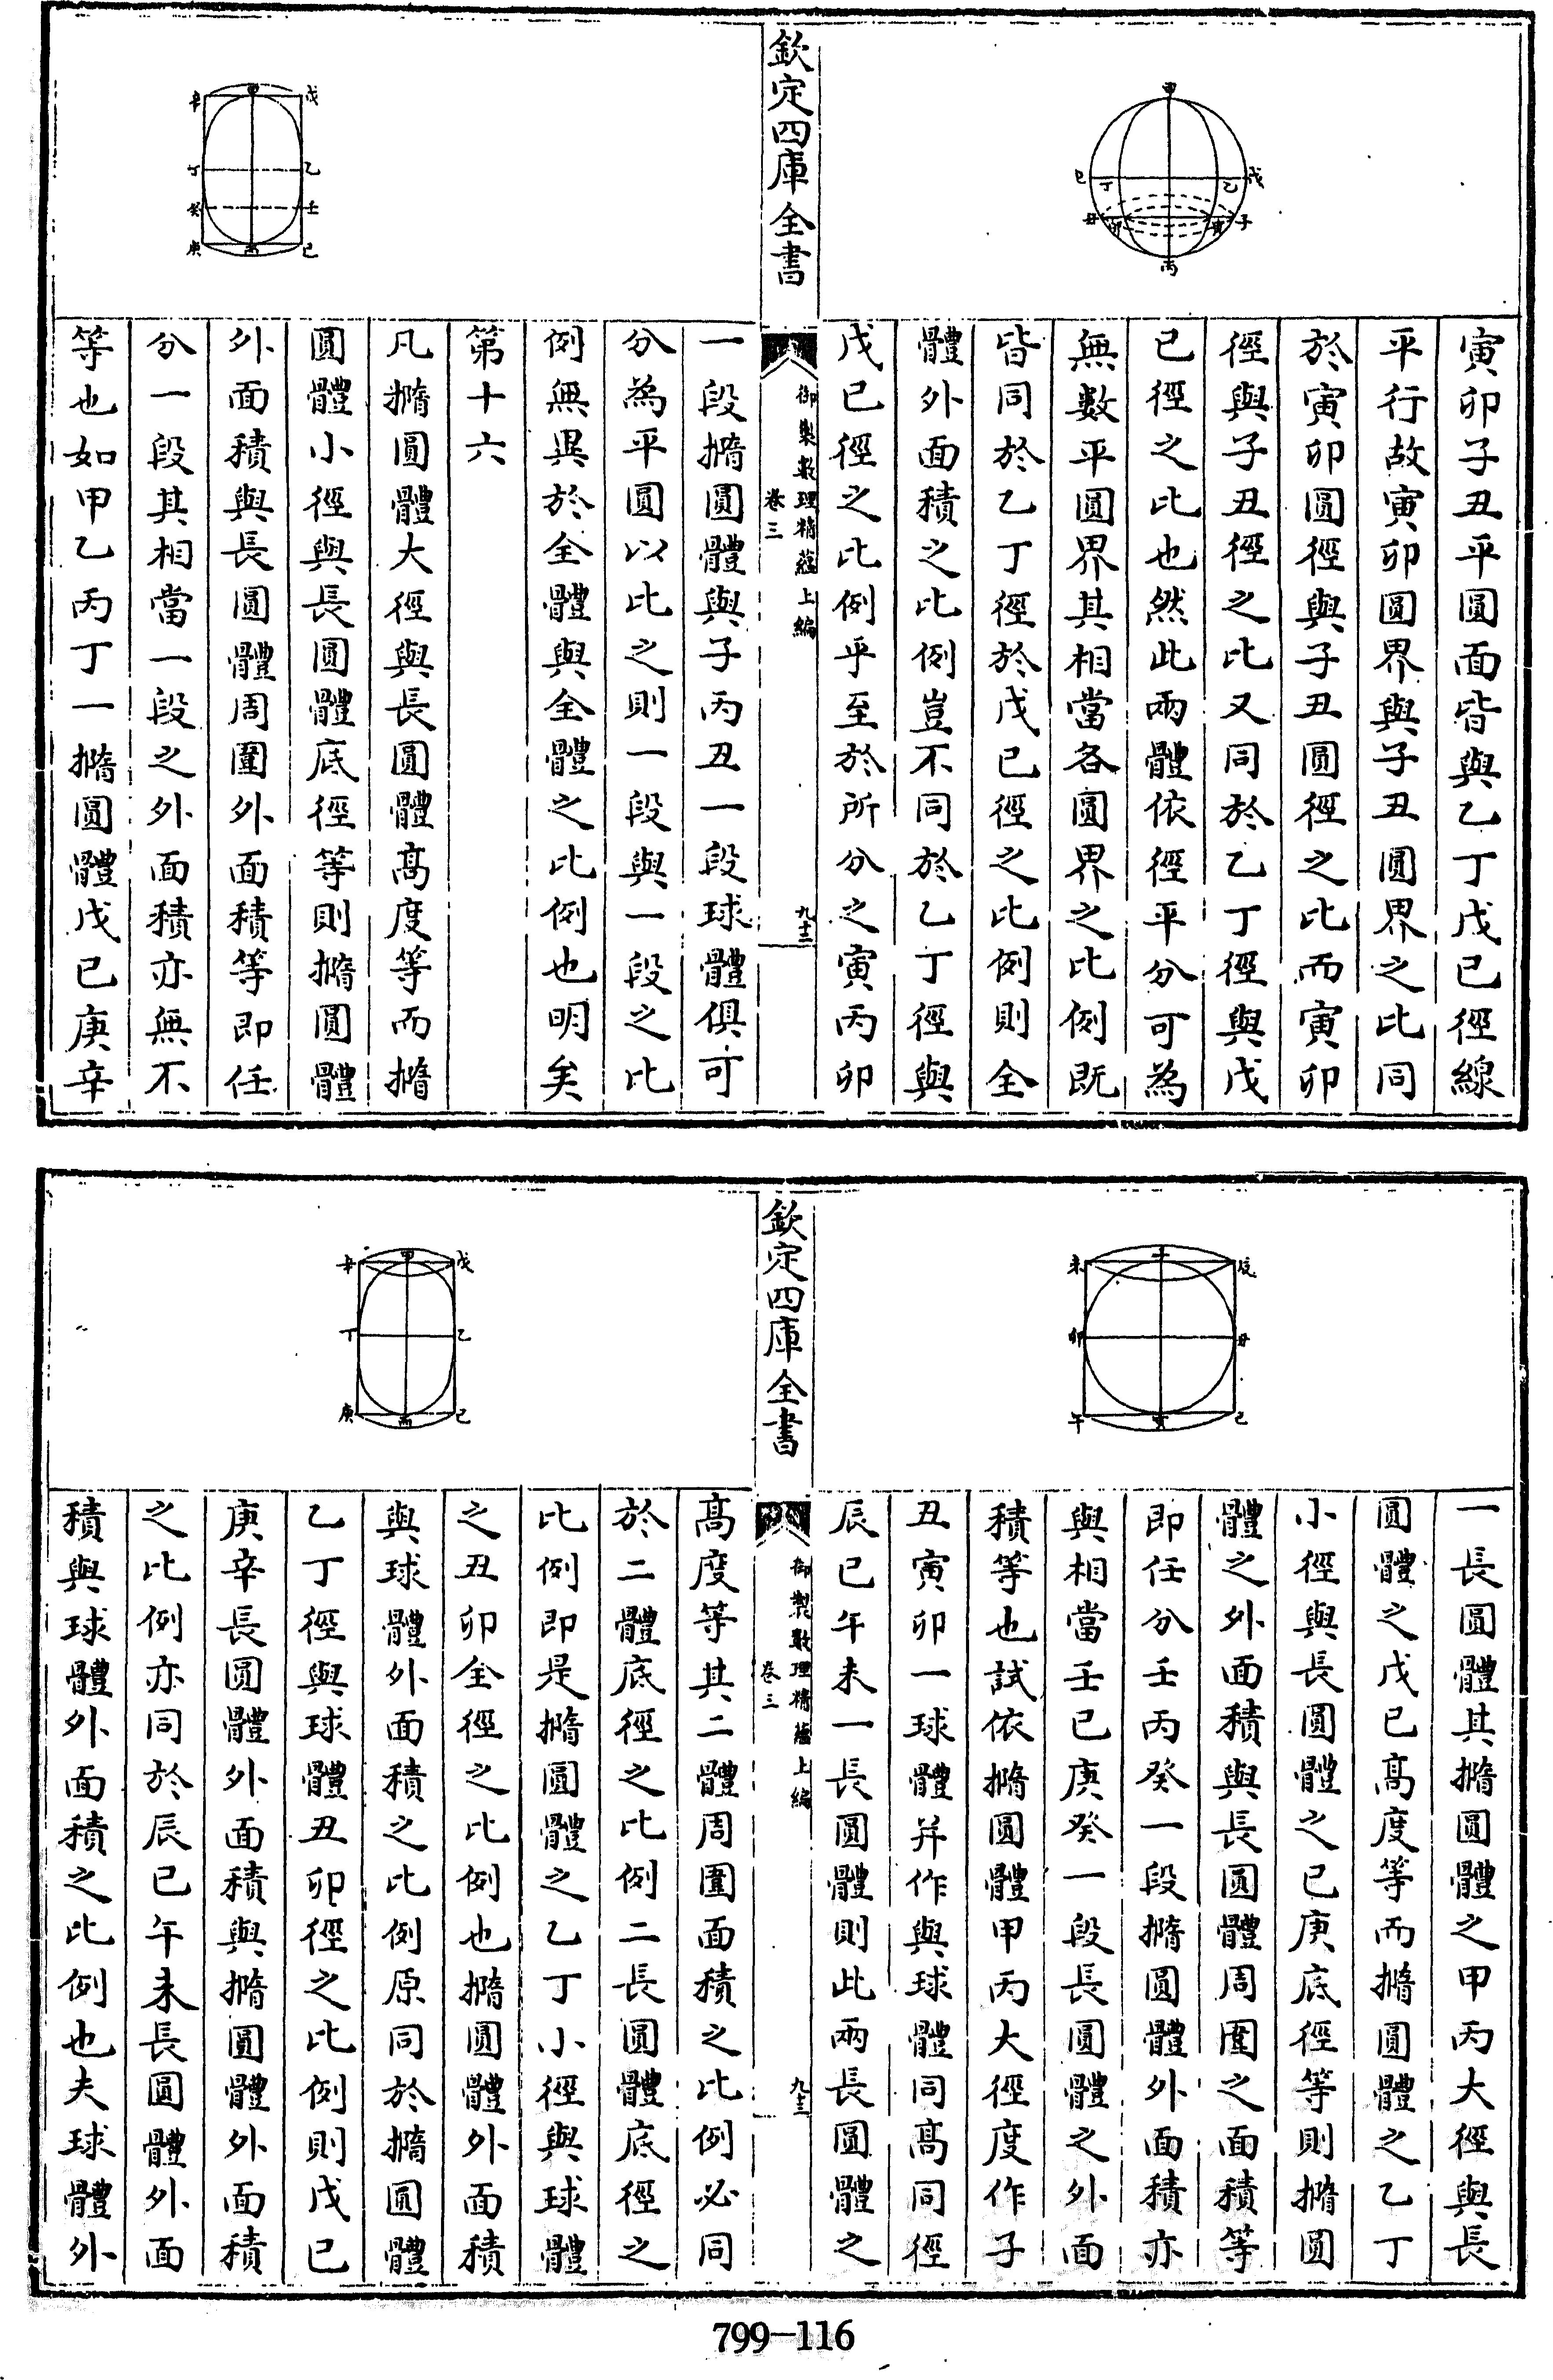 寅卯子丑平圓面皆與乙丁戊己徑線
平行故寅卯圓界與子丑圓界之比同
於寅卯圓徑與子丑圓徑之比而寅卯
徑與子丑徑之比又同於乙丁徑與戊
己徑之比也然此兩體依徑平分可為
無數平圓界其相當各圓界之比例既
皆同於乙丁徑於戊己徑之比例則全
體外面積之比例豈不同於乙丁徑與
戊己徑之比例乎至於所分之寅丙卯
欽定四庫全書
御製數理精蘊上編
卷三
九十三
一段撱圓體與子丙丑一段球體俱可
分為平圓以比之則一段與一段之比
例無異於全體與全體之比例也明矣
第十六
凡撱圓體大徑與長圓體高度等而撱
圓體小徑與長圓體底徑等則撱圓體
外面積與長圓體周圍外面積等即任
分一段其相當一段之外面積亦無不
等也如甲乙丙丁一撱圓體戊己庚辛
甲
戊
己
丁
乙
丑
卯
寅
子
丙
辛
甲
戊
丁
乙
癸
壬
庚
丙
己
一長圓體其撱圓體之甲丙大徑與長
圓體之戊己高度等而撱圓體之乙丁
小徑與長圓體之己庚底徑等則撱圓
體之外面積與長圓體周圍之面積等
即任分壬丙癸一段撱圓體外面積亦
與相當壬己庚癸一段長圓體之外面
積等也試依撱圓體甲丙大徑度作子
丑寅卯一球體并作與球體同高同徑
辰巳午未一長圓體則此兩長圓體之
欽定四庫全書
御製數理精蘊上編
卷三
高度等其二體周圍面積之比例必同
於二體底徑之比例二長圓體底徑之
比例即是撱圓體之乙丁小徑與球體
之丑卯全徑之比例也撱圓體外面積
與球體外面積之比例原同於撱圓體
乙丁徑與球體丑卯徑之比例則戊己
庚辛長圓體外面積與撱圓體外面積
之比例亦同於辰巳午未長圓體外面
積與球體外面積之比例也夫球體外
未
子
辰
卯
丑
午
寅
巳
辛
甲
戊
丁
乙
庚
丙
己
799-116